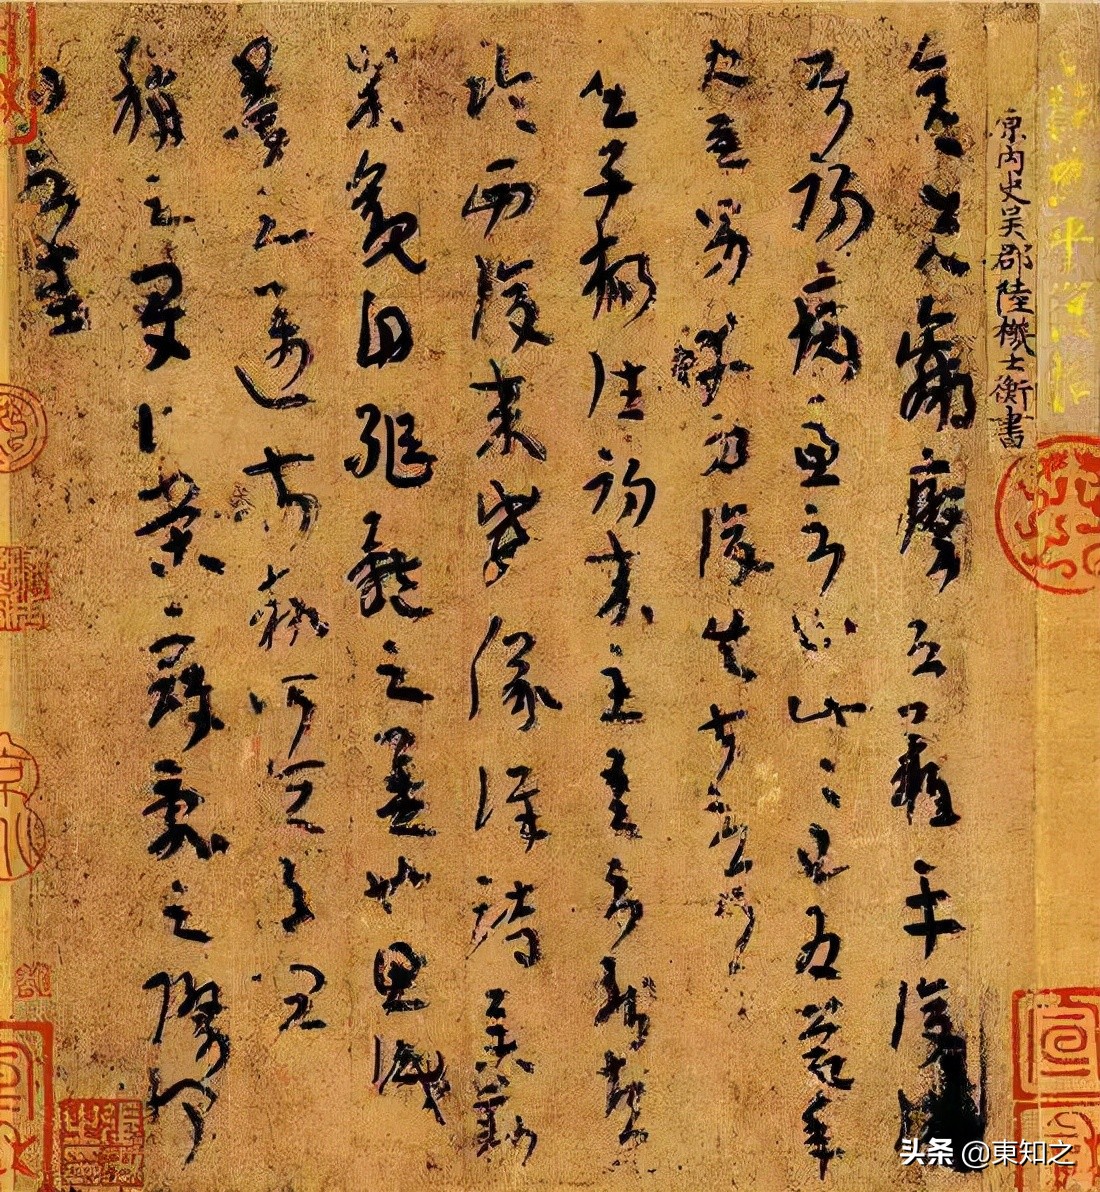 晉陸機平復帖
原內史吳郡陸機士衡書
彦先羸瘵恐難平復往屬
初病慮不止此此已為慶承
使唯男幸為復失前憂耳
吳子楊往初來主吾不能盡
臨西復來威儀詳跱舉動
成觀自軀體之美也思識
量之邁前執所恒有宜
稱之夏伯榮寇亂之際聞
問不悉
头条 @東知之